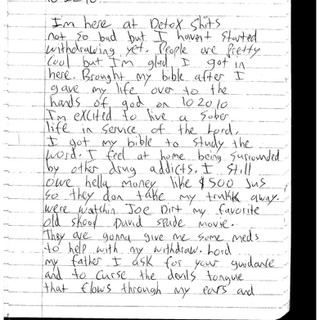 Im here at Detox shits
not so bad but I havnt started
withdrawing yet. People are Pretty
cool but I'm glad I got in
here. Brought my bible after I
gave my life over to the
hands of god on 10.20.10
I'm excited to live a sober
life in service of the Lord.
I got my bible to study the
word. I feel at home being surrounded
by other drug addicts. I still
owe hella money like $500 jus
so they don take my trukk away.
were watchin Joe Dirt my favorite
old skool David Spade movie.
They are gonna give me some meds
to help with my withdraw. Lord
my father I ask for your guidance
and to curse the devils tongue
that flows through my ears and